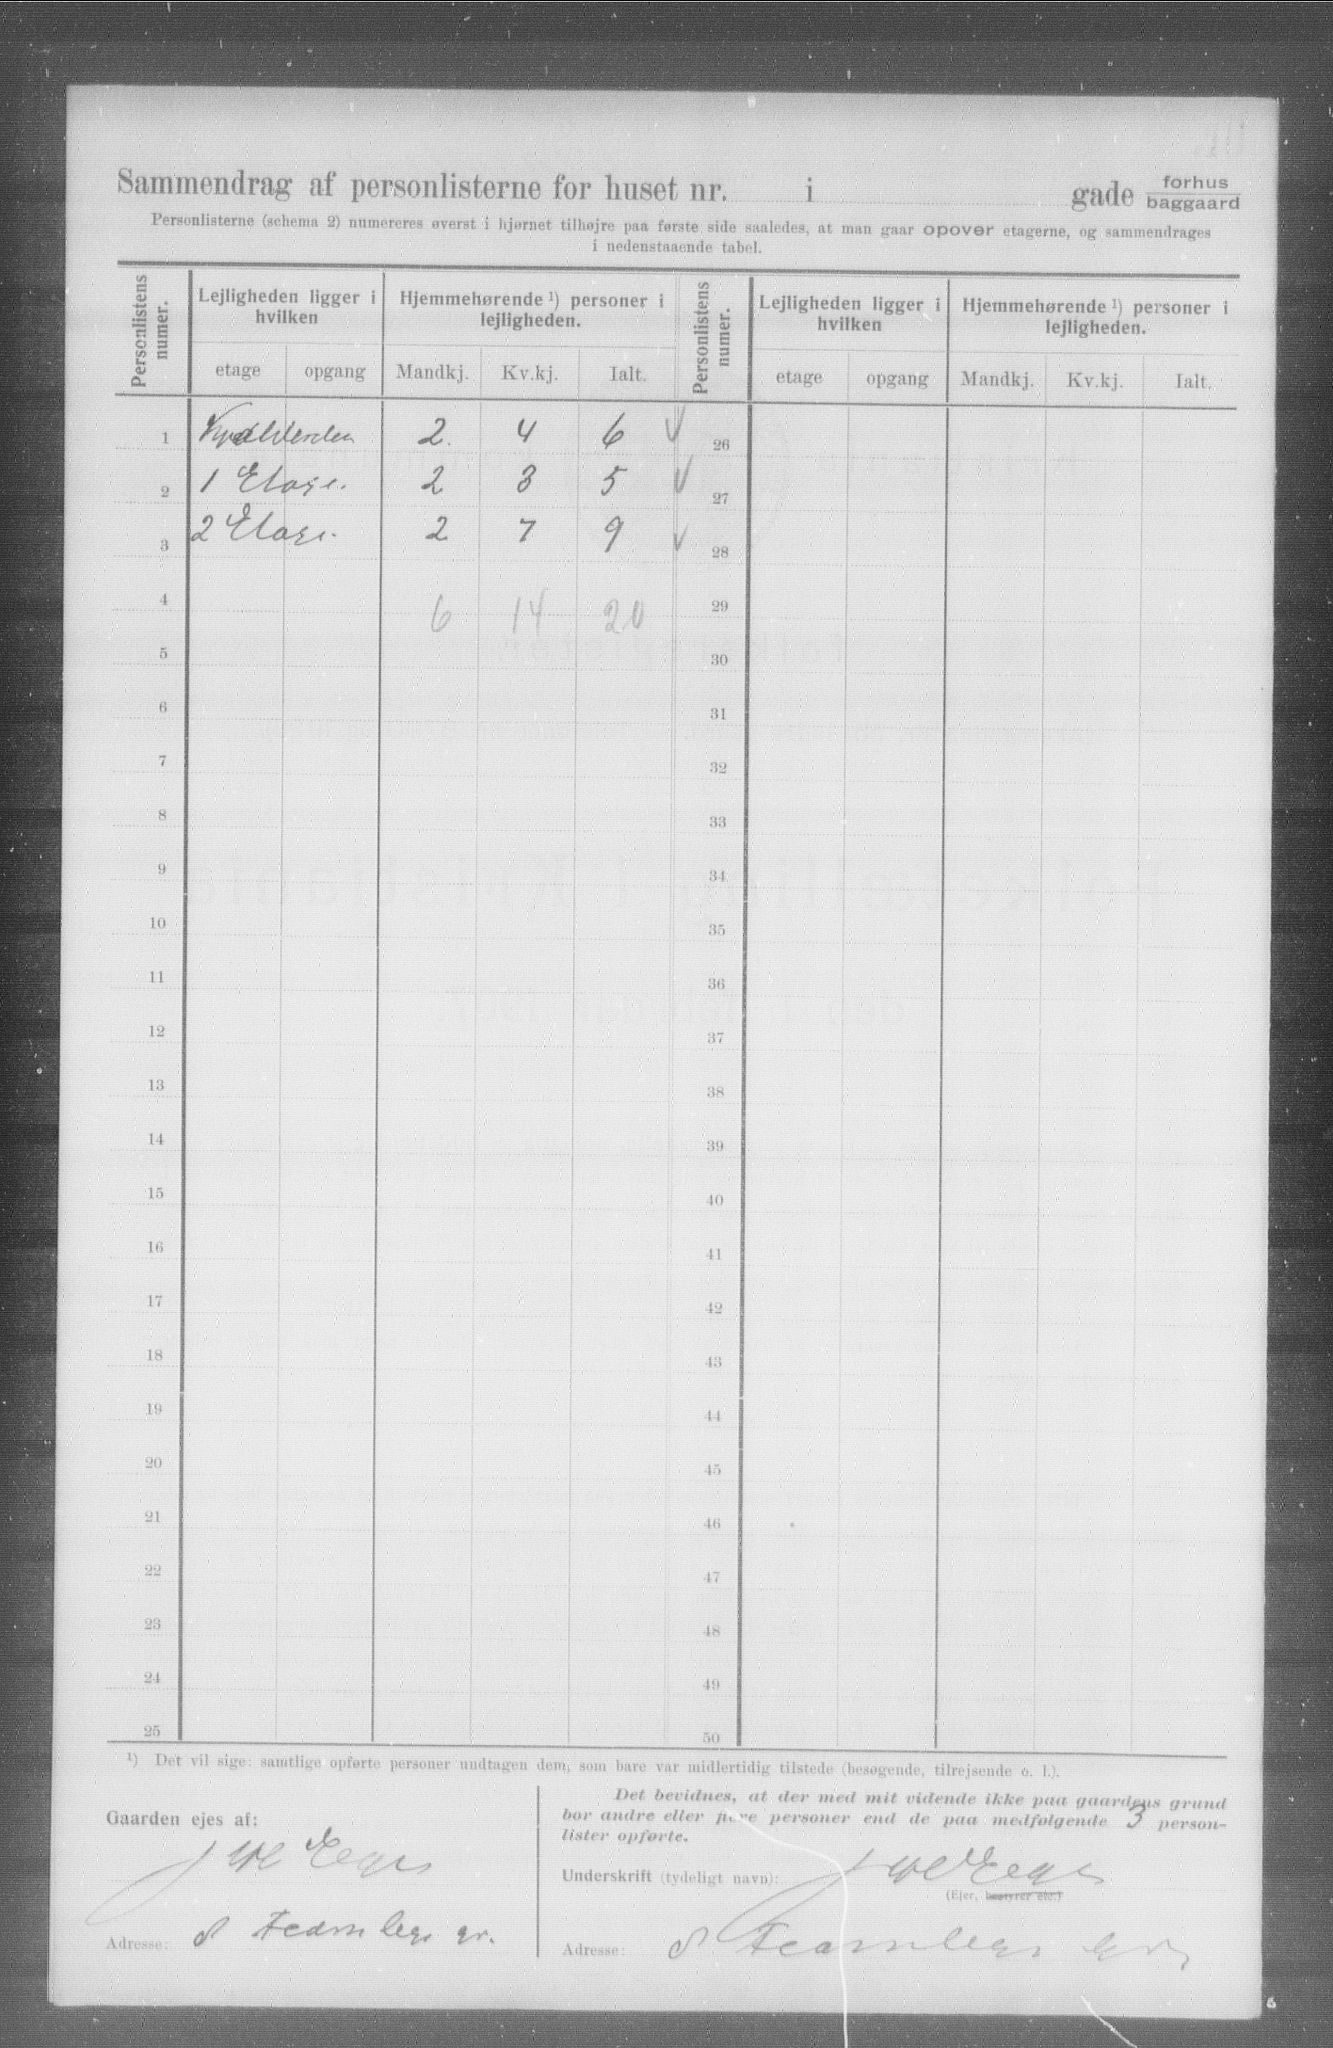 Sammendrag af personlisterne for huset nr. i gade forhus baggaard
Personlisterne (schema 2) numereres øverst i hjørnet tilhøjre paa første side saaledes, at man gaar opover etagerne, og sammendrages
i nedenstaaende tabel.
Personlistens numer. Lejligheden ligger i hvilken Hjemmehørende ¹) personer i lejligheden. Personlistens numer. Lejligheden ligger i hvilken Hjemmehørende ¹) personer i lejligheden.
etage opgang Mandkj. Kv.kj. Ialt. etage opgang Mandkj. Kv.kj. Ialt.
1 2. 4 6 √ 26
2 1 Etage. 2 3 5 √ 27
3 2 Etage. 2 7 9 √ 28
4 6 14 20 29
5 30
6 31
7 32
8 33
9 34
10 35
11 36
12 37
13 38
14 39
15 40
16 41
17 42
18 43
19 44
20 45
21 46
22 47
23 48
24 49
25 50
¹) Det vil sige: samtlige opførte personer undtagen dem, som bare var midlertidig tilstede (besøgende, tilrejsende o. l.).
Gaarden ejes af:
Adresse: 8 Fearnleys gr.
Det bevidnes, at der med mit vidende ikke paa gaardens grund
bor andre eller flere personer end de paa medfølgende 3 person-
lister opførte.
Underskrift (tydeligt navn):
(Ejer, bestyrer etc.)
Adresse: 8 Fearnleys